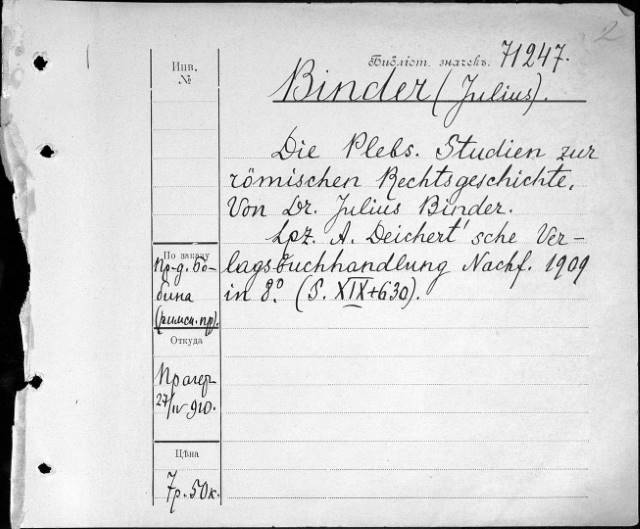 2
Библіот. значекъ. 71247.
Инв.
№
Binder (Julius).
Die Plebs. Studien zur
römischen Rechtsgeschichte,
Von Dr. Julius Binder.
Lpz. A. Deichert'sche Ver-
lagsbuchhandlung Nachf. 1909
in 8°. (S. XIX+630).
По заказу
Пр-д. Бо-
бина
(римск. пр).
Откуда
27/IV 910.
Цѣна
7р. 50к.